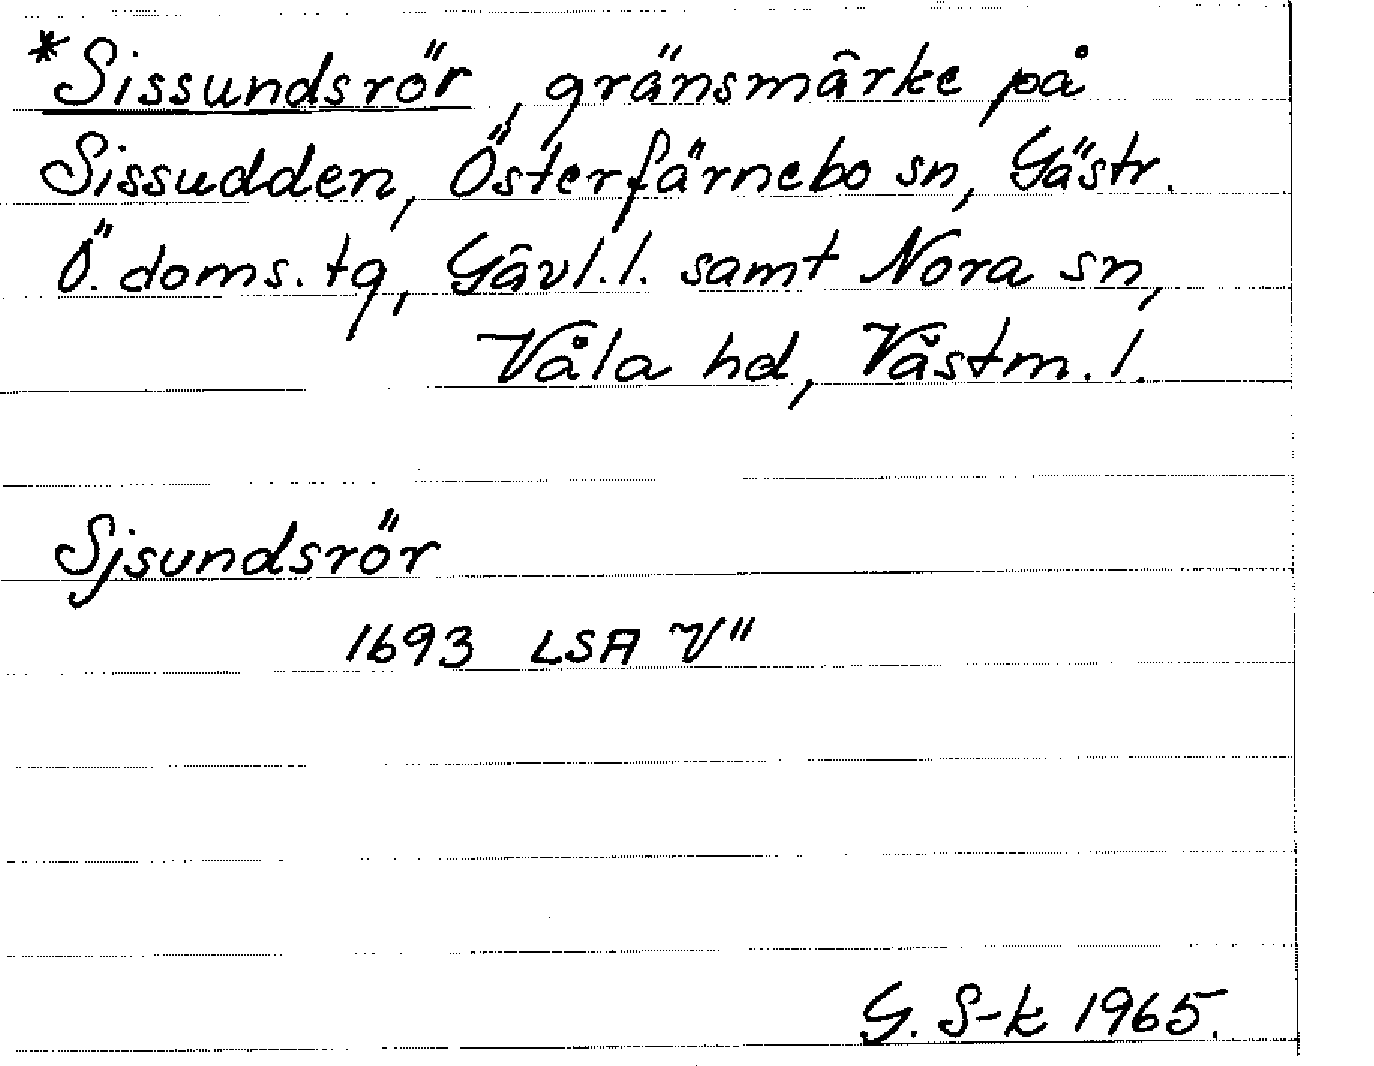 *Sissundsrör, gränsmärke på
Sissudden, Österfärnebo sn, Gästr.
Ö. doms. tg, Gävl. l. samt Nora sn,
Våla hd, Västm. l.
Sjsundsrör
1693 LSA V"
G. S-k 1965.